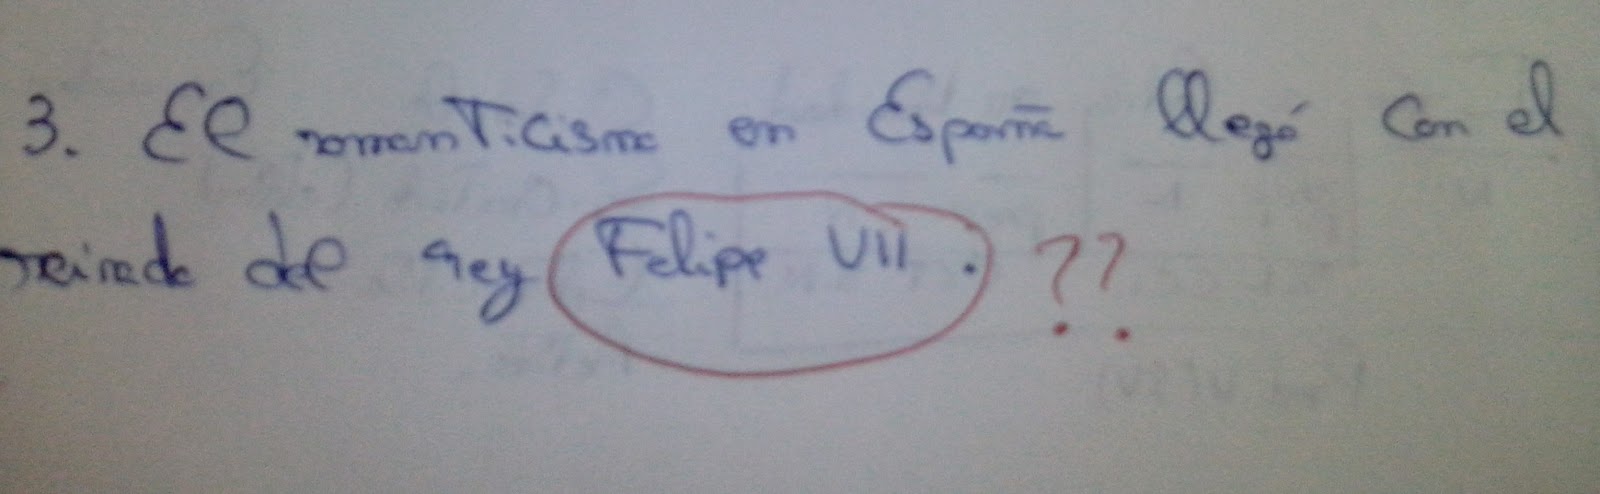 3. El romanticismo en España llegó con el
reinado del rey Felipe VII. ??